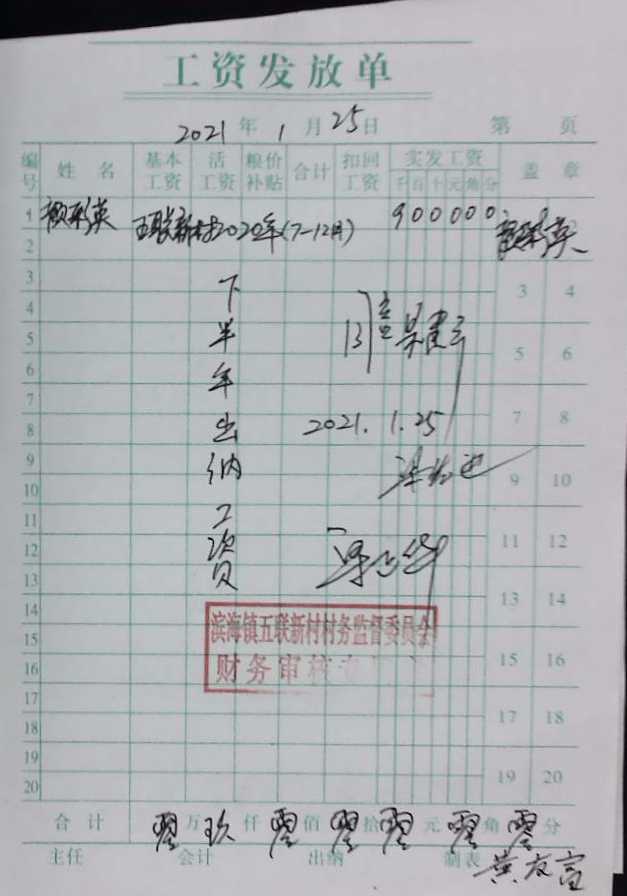 工资发放单
2021年1月25日 第 页
编号 姓名 基本工资 活工资 粮价补贴 合计 扣回工资 实发工资 盖章
千百十元角分
1 颜彩英 五联新村2020年(7-12月) 900000 颜彩英 2
2
3 下 3 4
4
5 半 同意 5 6
6 年
7
8 出 2021.1.25 7 8
9 纳 9 10
10
11 工 11 12
12 资
13 13 14
14
滨海镇五联新村村务监督委员会
15 15 16
16 财务审核专
17 17 18
18
19 19 20
20
合计 零万玖仟零佰零拾零元零角零分
主任 会计 出纳 制表 黄友富